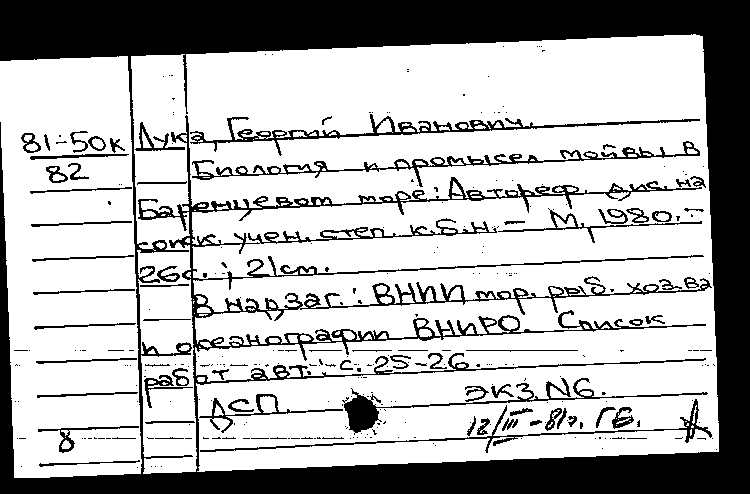 81-50к Лука, Георгий Иванович.
82 Биология и промысел мойвы в
Баренцевом море: Автореф. дис. на
соиск. учен. степ. к.б.н. – М., 1980. –
26с.; 21см.
В надзаг.: ВНИИ мор. рыб. хоз-ва
и океанографии ВНИРО. Список
работ авт.: с. 25-26.
ДСП. ЭКЗ. N6.
8 12/III-81г. ГБ.